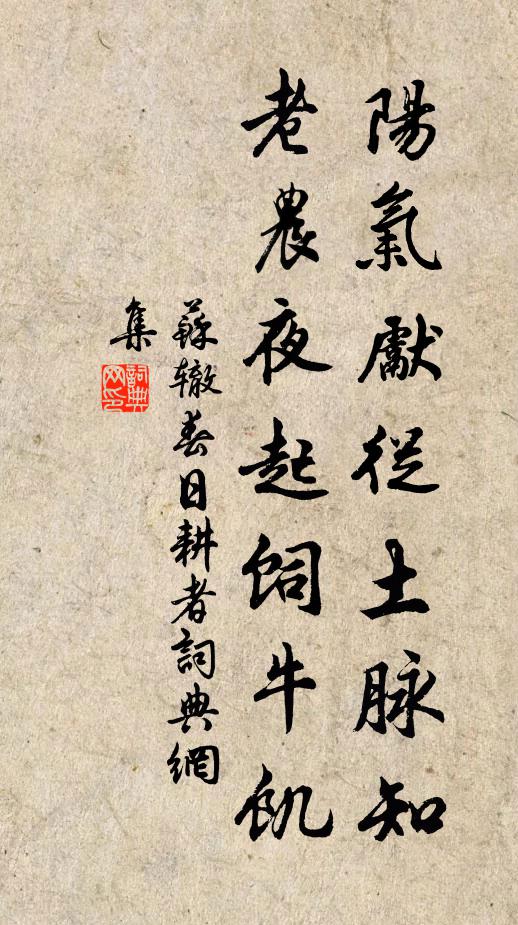 陽氣獻從土脈知
老農夜起飼牛飢
蘇轍春日耕者詞典網
集
詞典
网印